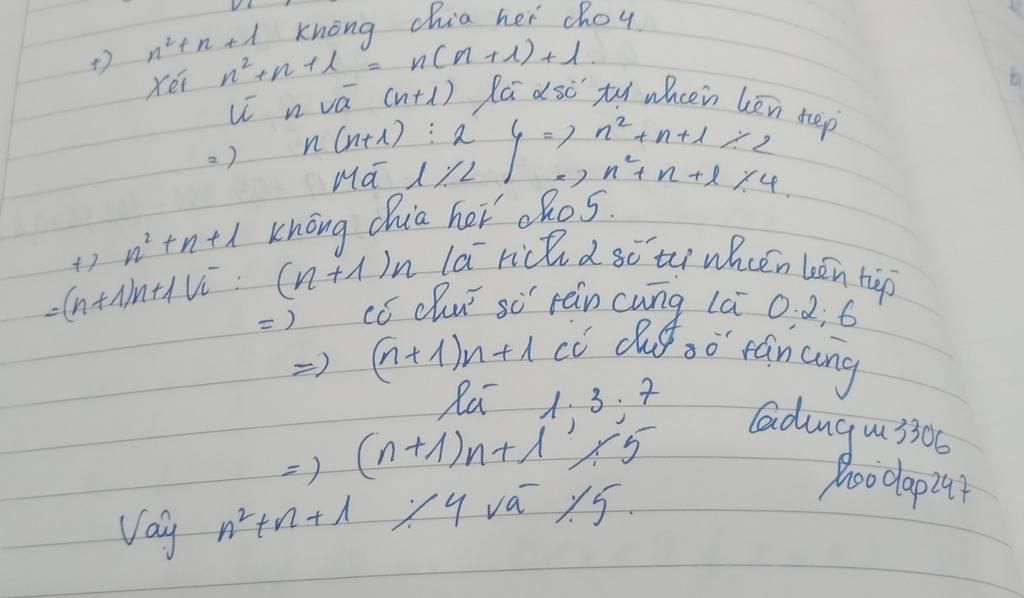 +) n²+n+1 không chia hết cho 4.
Xét n²+n+1 = n(n+1)+1.
Vì n và (n+1) là 2 số tự nhiên liên tiếp
=) n(n+1) ⋮ 2 } =) n²+n+1 ⋮̸ 2
Mà 1 ⋮̸ 2 =) n²+n+1 ⋮̸ 4.
+) n²+n+1 không chia hết cho 5.
=(n+1)n+1 Vì : (n+1)n là tích 2 số tự nhiên liên tiếp
=) có chữ số tận cùng là 0;2;6
=) (n+1)n+1 có chữ số tận cùng
là 1;3;7
=) (n+1)n+1 ⋮̸ 5
Vậy n²+n+1 ⋮̸ 4 và ⋮̸ 5.
3306
hoidap247